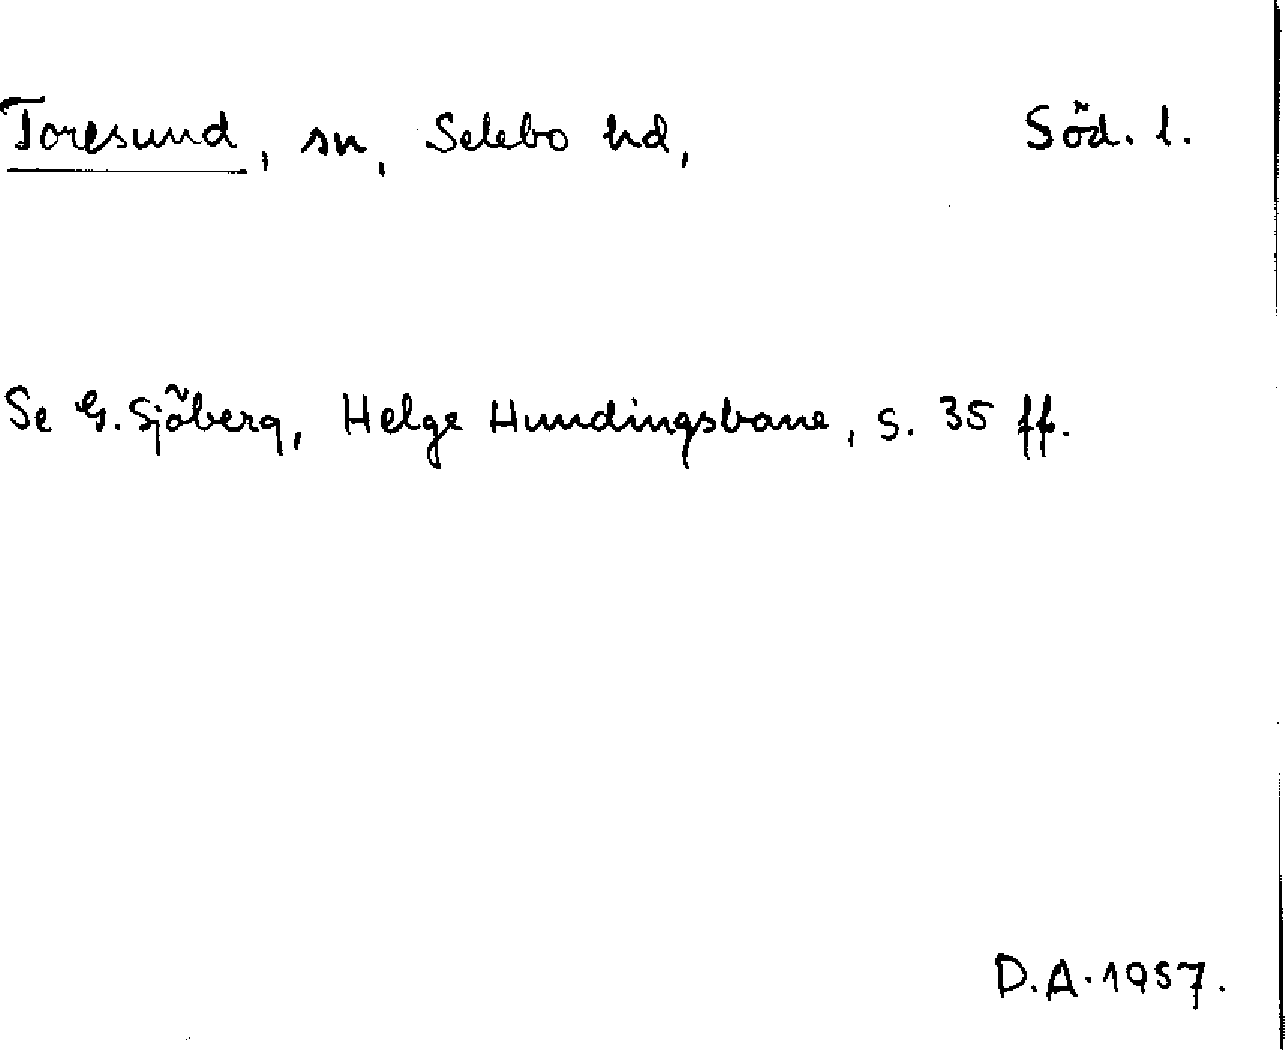 Toresund, sn, Selebo hd, Söd. l.
Se G. Sjöberg, Helge Hundingsbane, s. 35 ff.
D.A. 1957.